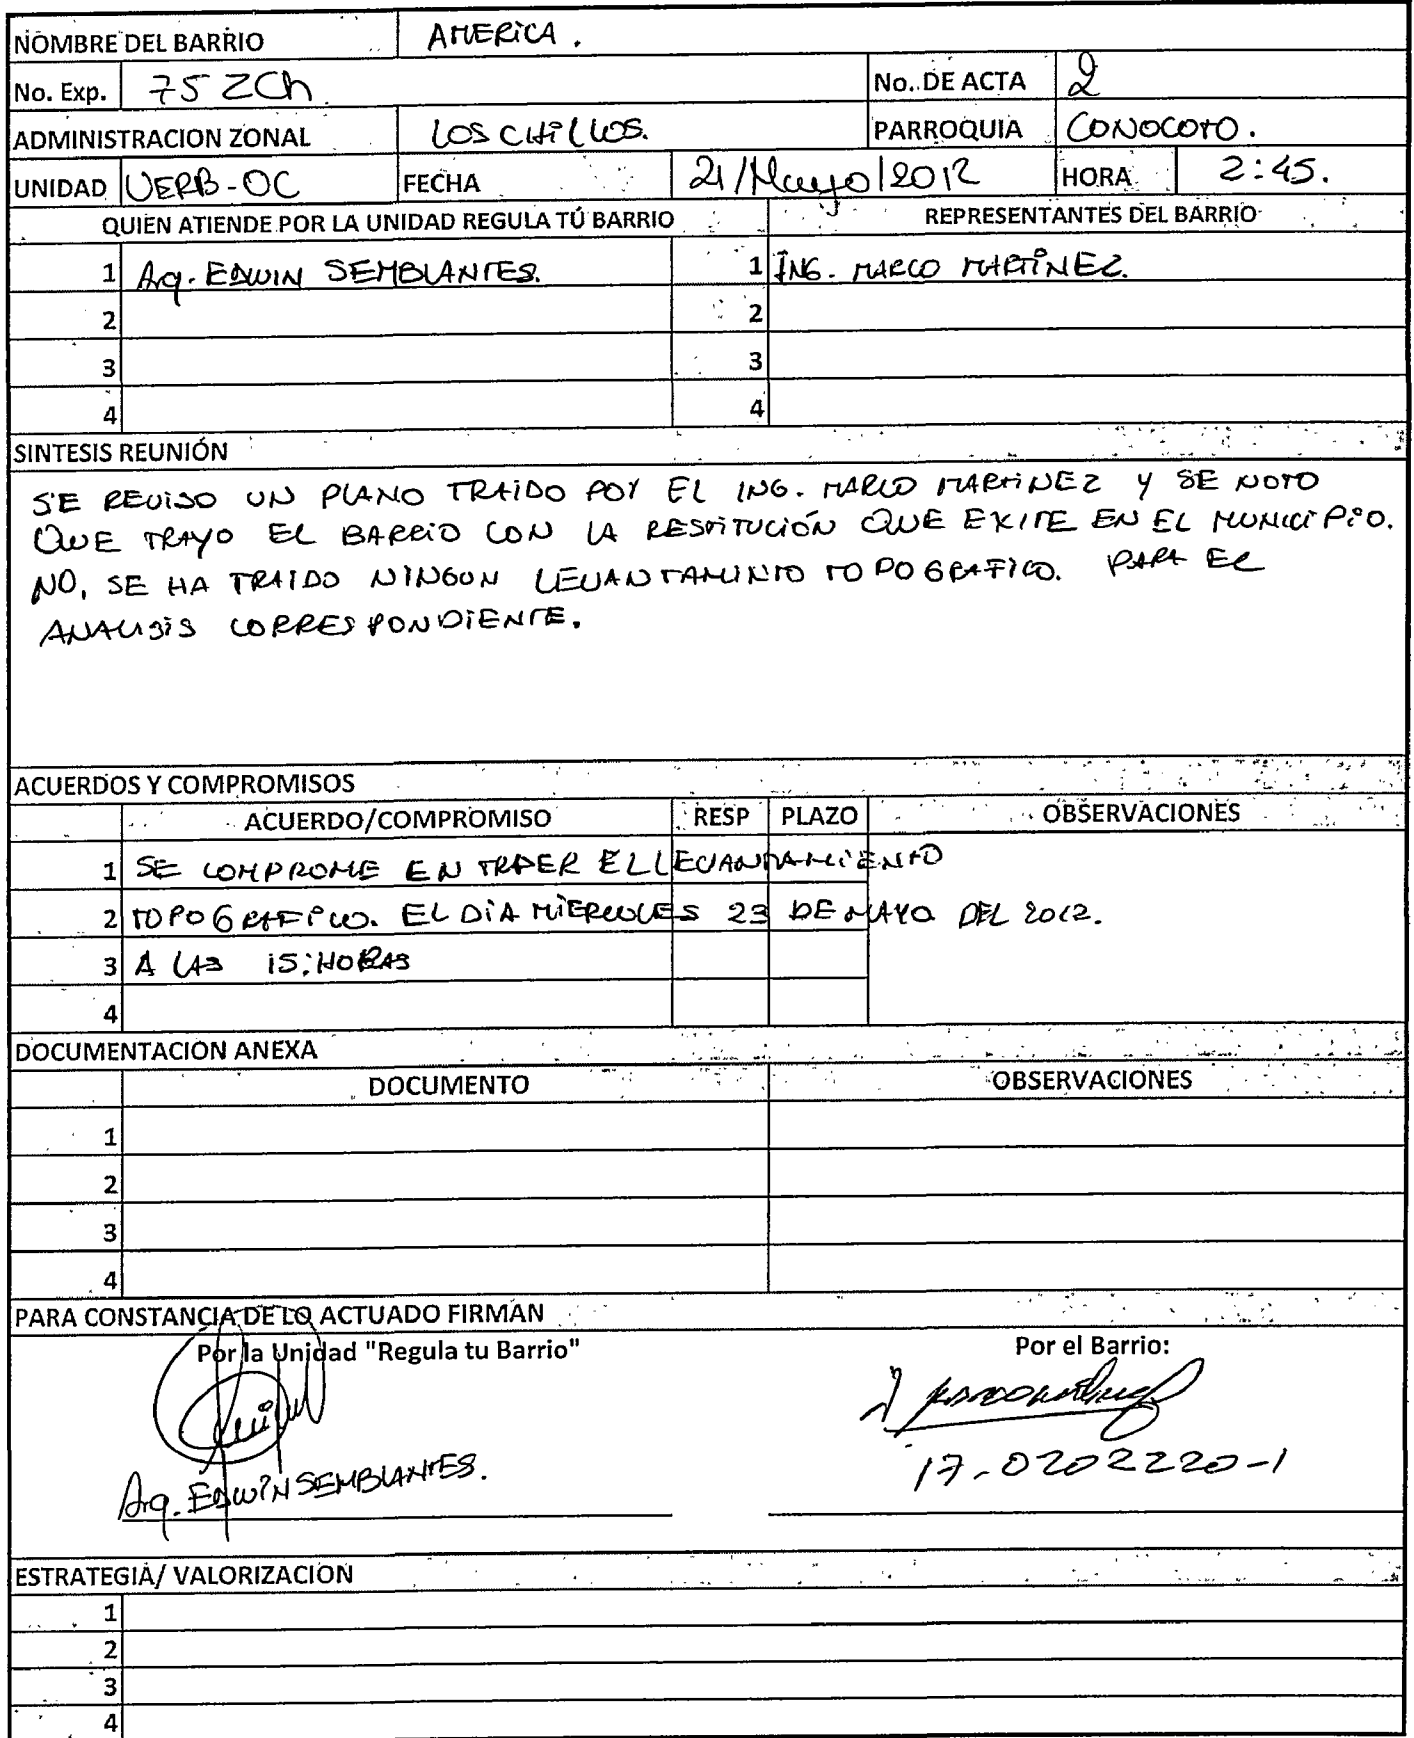 NOMBRE DEL BARRIO AMERICA.
No. Exp. 75 ZCh No. DE ACTA 2
ADMINISTRACION ZONAL LOS CHILLOS. PARROQUIA CONOCOTO.
UNIDAD UERB-OC FECHA 21/Mayo/2012 HORA 2:45.
QUIEN ATIENDE POR LA UNIDAD REGULA TÚ BARRIO REPRESENTANTES DEL BARRIO
1 Arq. EDWIN SEMBLANTES. 1 ING. MARCO MARTINEZ.
2 2
3 3
4 4
SINTESIS REUNIÓN
SE REVISO UN PLANO TRAIDO POR EL ING. MARCO MARTINEZ Y SE NOTO
QUE TRAYO EL BARRIO CON LA RESTITUCIÓN QUE EXITE EN EL MUNICIPIO.
NO, SE HA TRAIDO NINGUN LEVANTAMINTO TOPOGRAFICO. PARA EL
ANALISIS CORRESPONDIENTE.
ACUERDOS Y COMPROMISOS
ACUERDO/COMPROMISO RESP PLAZO OBSERVACIONES
1 SE COMPROME EN TRAER EL LEVANTAMIENTO
2 TOPOGRAFICO. EL DIA MIERCOLES 23 DE MAYO DEL 2012.
3 A LAS 15:HORAS
4
DOCUMENTACION ANEXA
DOCUMENTO OBSERVACIONES
1
2
3
4
PARA CONSTANCIA DE LO ACTUADO FIRMAN
Por la Unidad "Regula tu Barrio" Por el Barrio:
Arq. EDWIN SEMBLANTES. 17-0202220-1
ESTRATEGIA/ VALORIZACION
1
2
3
4